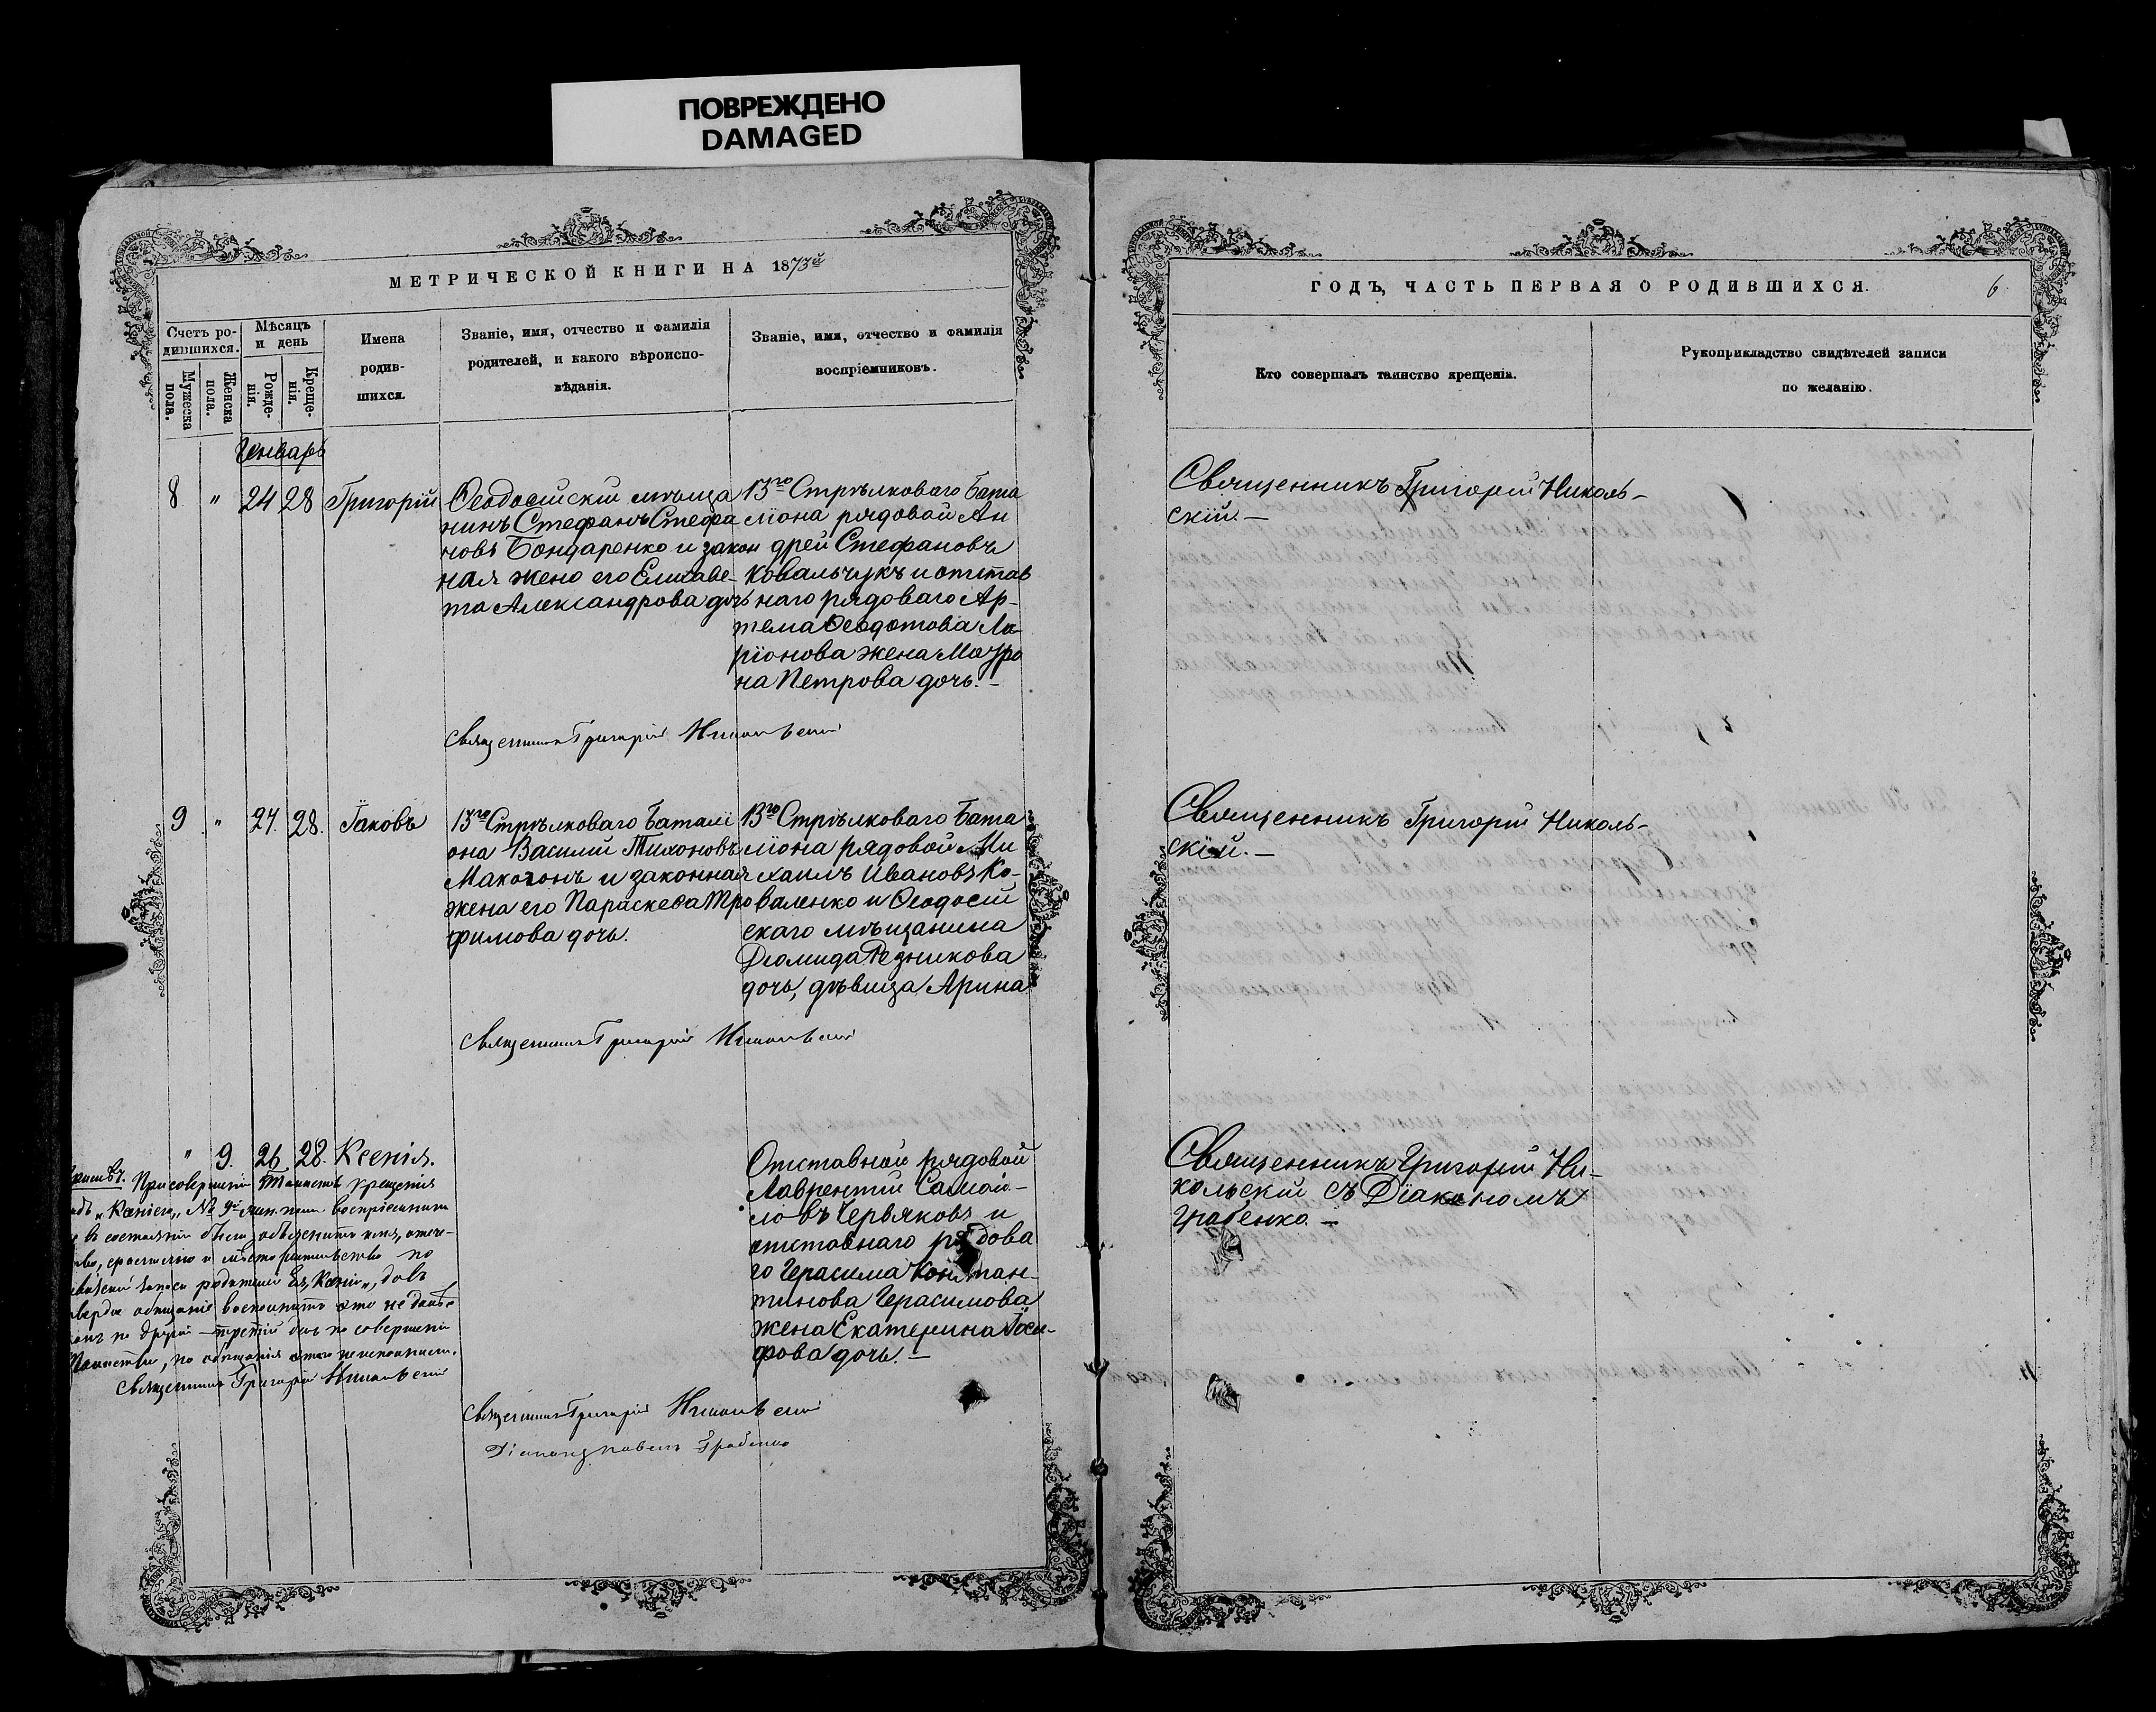 ПОВРЕЖДЕНО
DAMAGED
МЕТРИЧЕСКОЙ КНИГИ НА 1873й
Счетъ ро-
дившихся.
Мужеска
пола.
Женска
пола.
Мѣсяцъ
и день
Рожде-
нія.
Креще-
нія.
Имена
родив-
шихся.
Званіе, имя, отчество и фамилія
родителей, и какого вѣроиспо-
вѣданія.
Званіе, имя, отчество и фамилія
воспріемниковъ.
Генварь
8 " 24 28 Григорій
Ѳеодосійскій мѣща
нинъ Стефанъ Стефа
новъ Бондаренко и закон
ная жена его Елисаве-
та Александрова дочь
13го Стрѣлковаго Бата
ліона рядовой Ан
дрей Стефановъ
Ковальчукъ и отстав
наго рядоваго Ар-
тема Ѳеодотова Ла-
ріонова жена Матро
на Петрова дочь. -
Священникъ Григорій Никольскій
9 " 27. 28. Іаковъ
13го Стрѣлковаго Баталі
она Василій Тихоновъ
Макогонъ и законная
жена его Параскева Тро
фимова дочь.
13го Стрѣлковаго Бата
ліона рядовой Ми
хаилъ Ивановъ Ко-
валенко и Ѳеодосій
скаго мѣщанина
Діомида Резникова
дочь, дѣвица, Арина
Священникъ Григорій Никольскій
" 9. 26 28. Ксенія.
Отставной рядовой
Лаврентій Самой-
ловъ Червяковъ и
отставнаго рядова
го Герасима Констан-
тинова Герасимова
жена Екатерина Іоси-
фова дочь. -
При совершеніи Таинства Крещенія
"Ксенія" № 9й воспріемники
въ состояніи были объяснить имя, отече-
и мѣсто по
записи родителей
обѣщаніе
на другой - третій день по совершеніи
Таинства, но обѣщанія
Священникъ Григорій Никольскій
Священникъ Григорій Никольскій
Діаконъ Павелъ Грабенко
ГОДЪ, ЧАСТЬ ПЕРВАЯ О РОДИВШИХСЯ.
6.
Кто совершалъ таинство крещенія.
Рукоприкладство свидѣтелей записи
по желанію.
Священникъ Григорій Николь-
скій. -
Священникъ Григорій Николь-
скій. -
Священникъ Григорій Ни-
кольскій съ Діакономъ
Грабенко. -